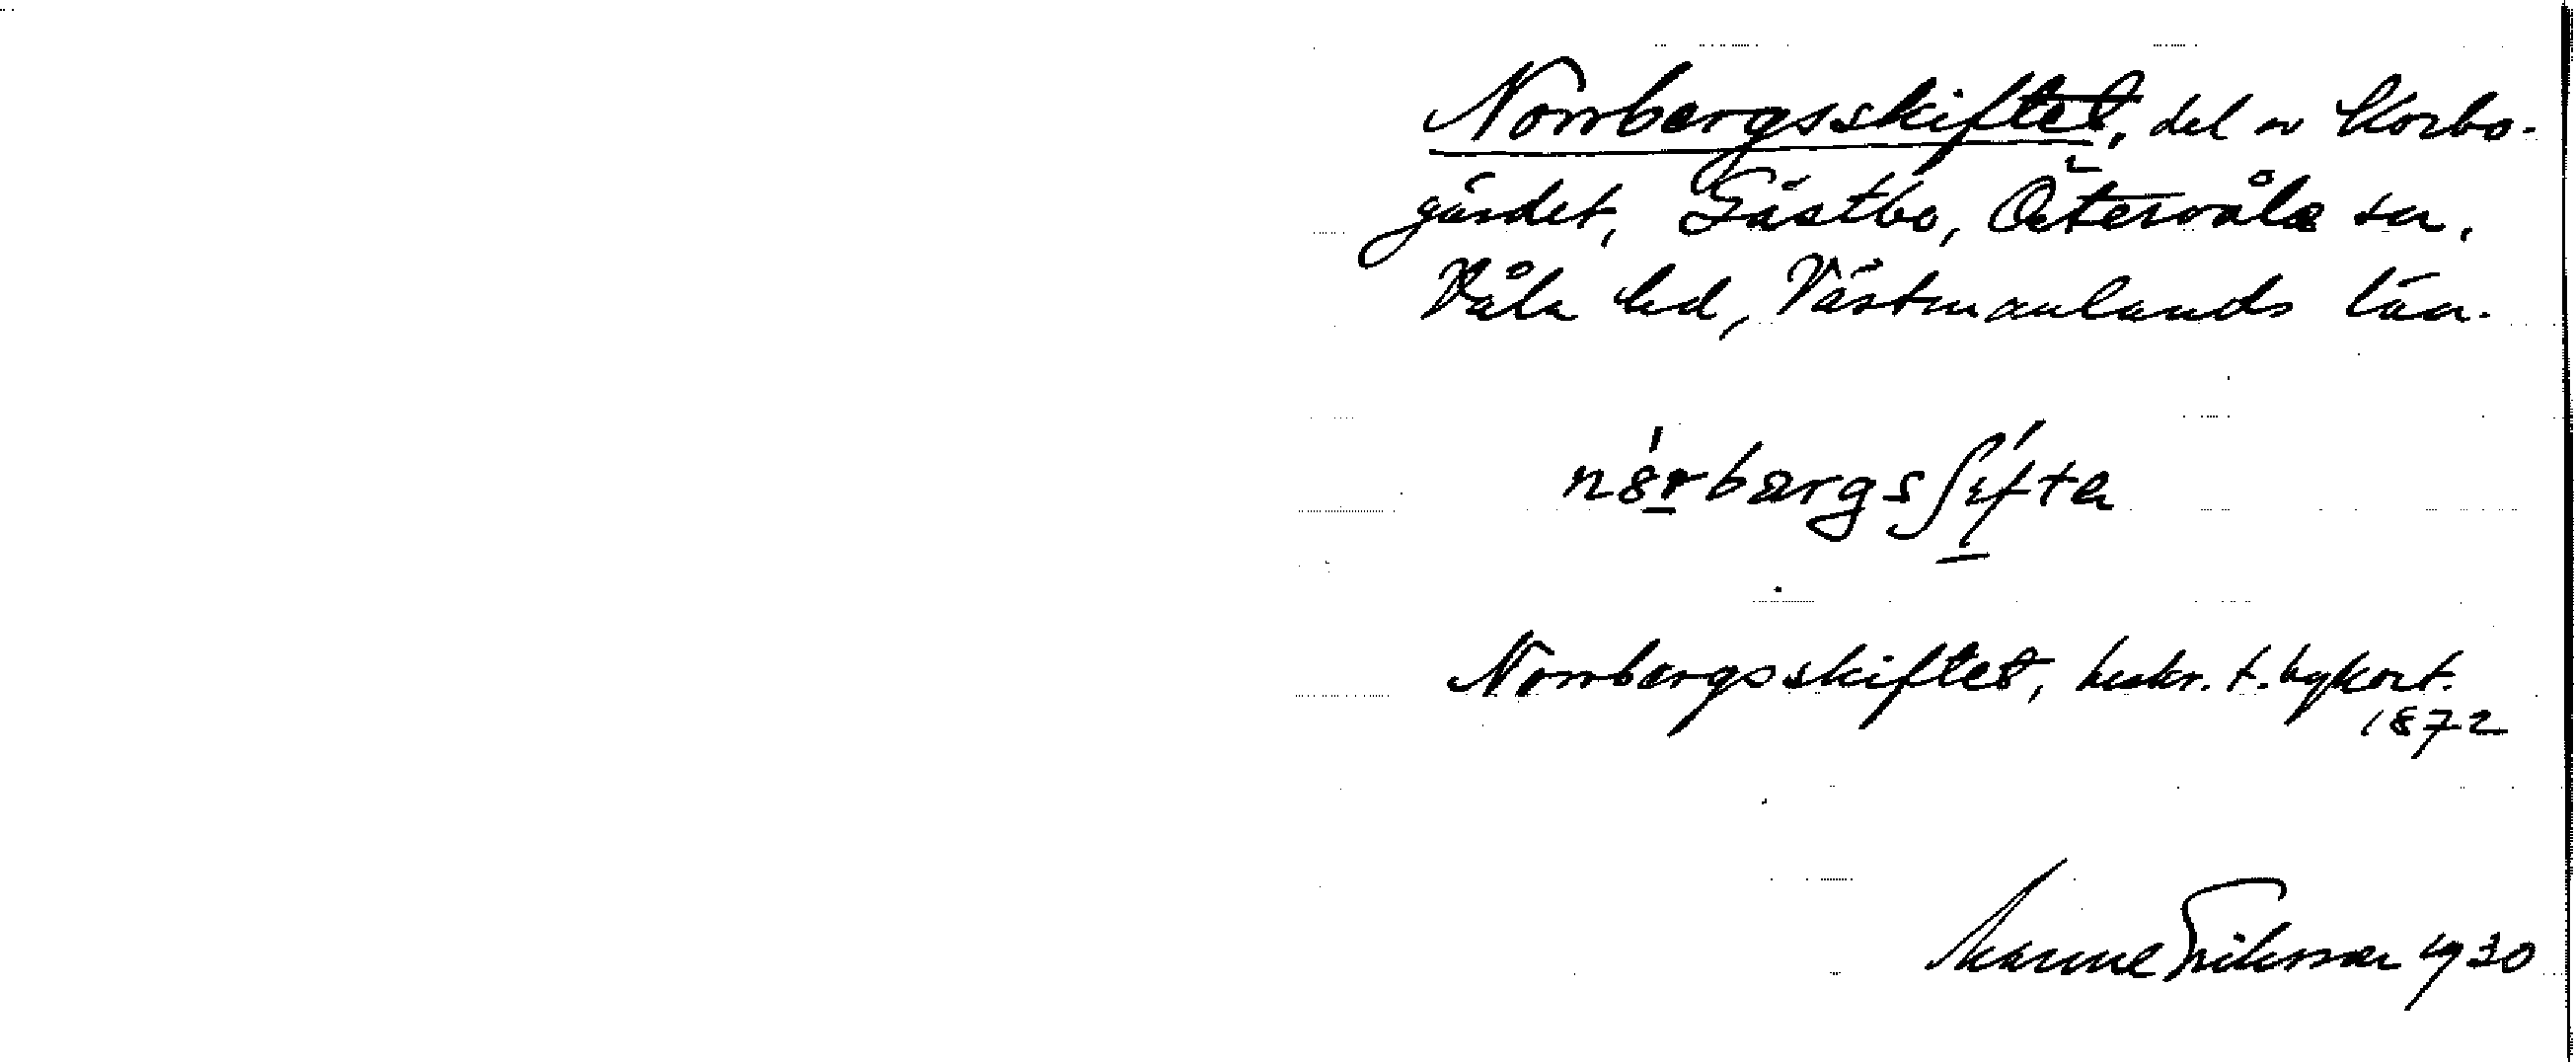 Norrbergsskiftet, del av Korbo-
gärdet, Gästbo, Östervåla sn,
Våla hd, Västmanlands län.
nórbærgsʃífta
Norrbergsskiftet, beskr. t. bykort.
1872
Manne Eriksson 1930